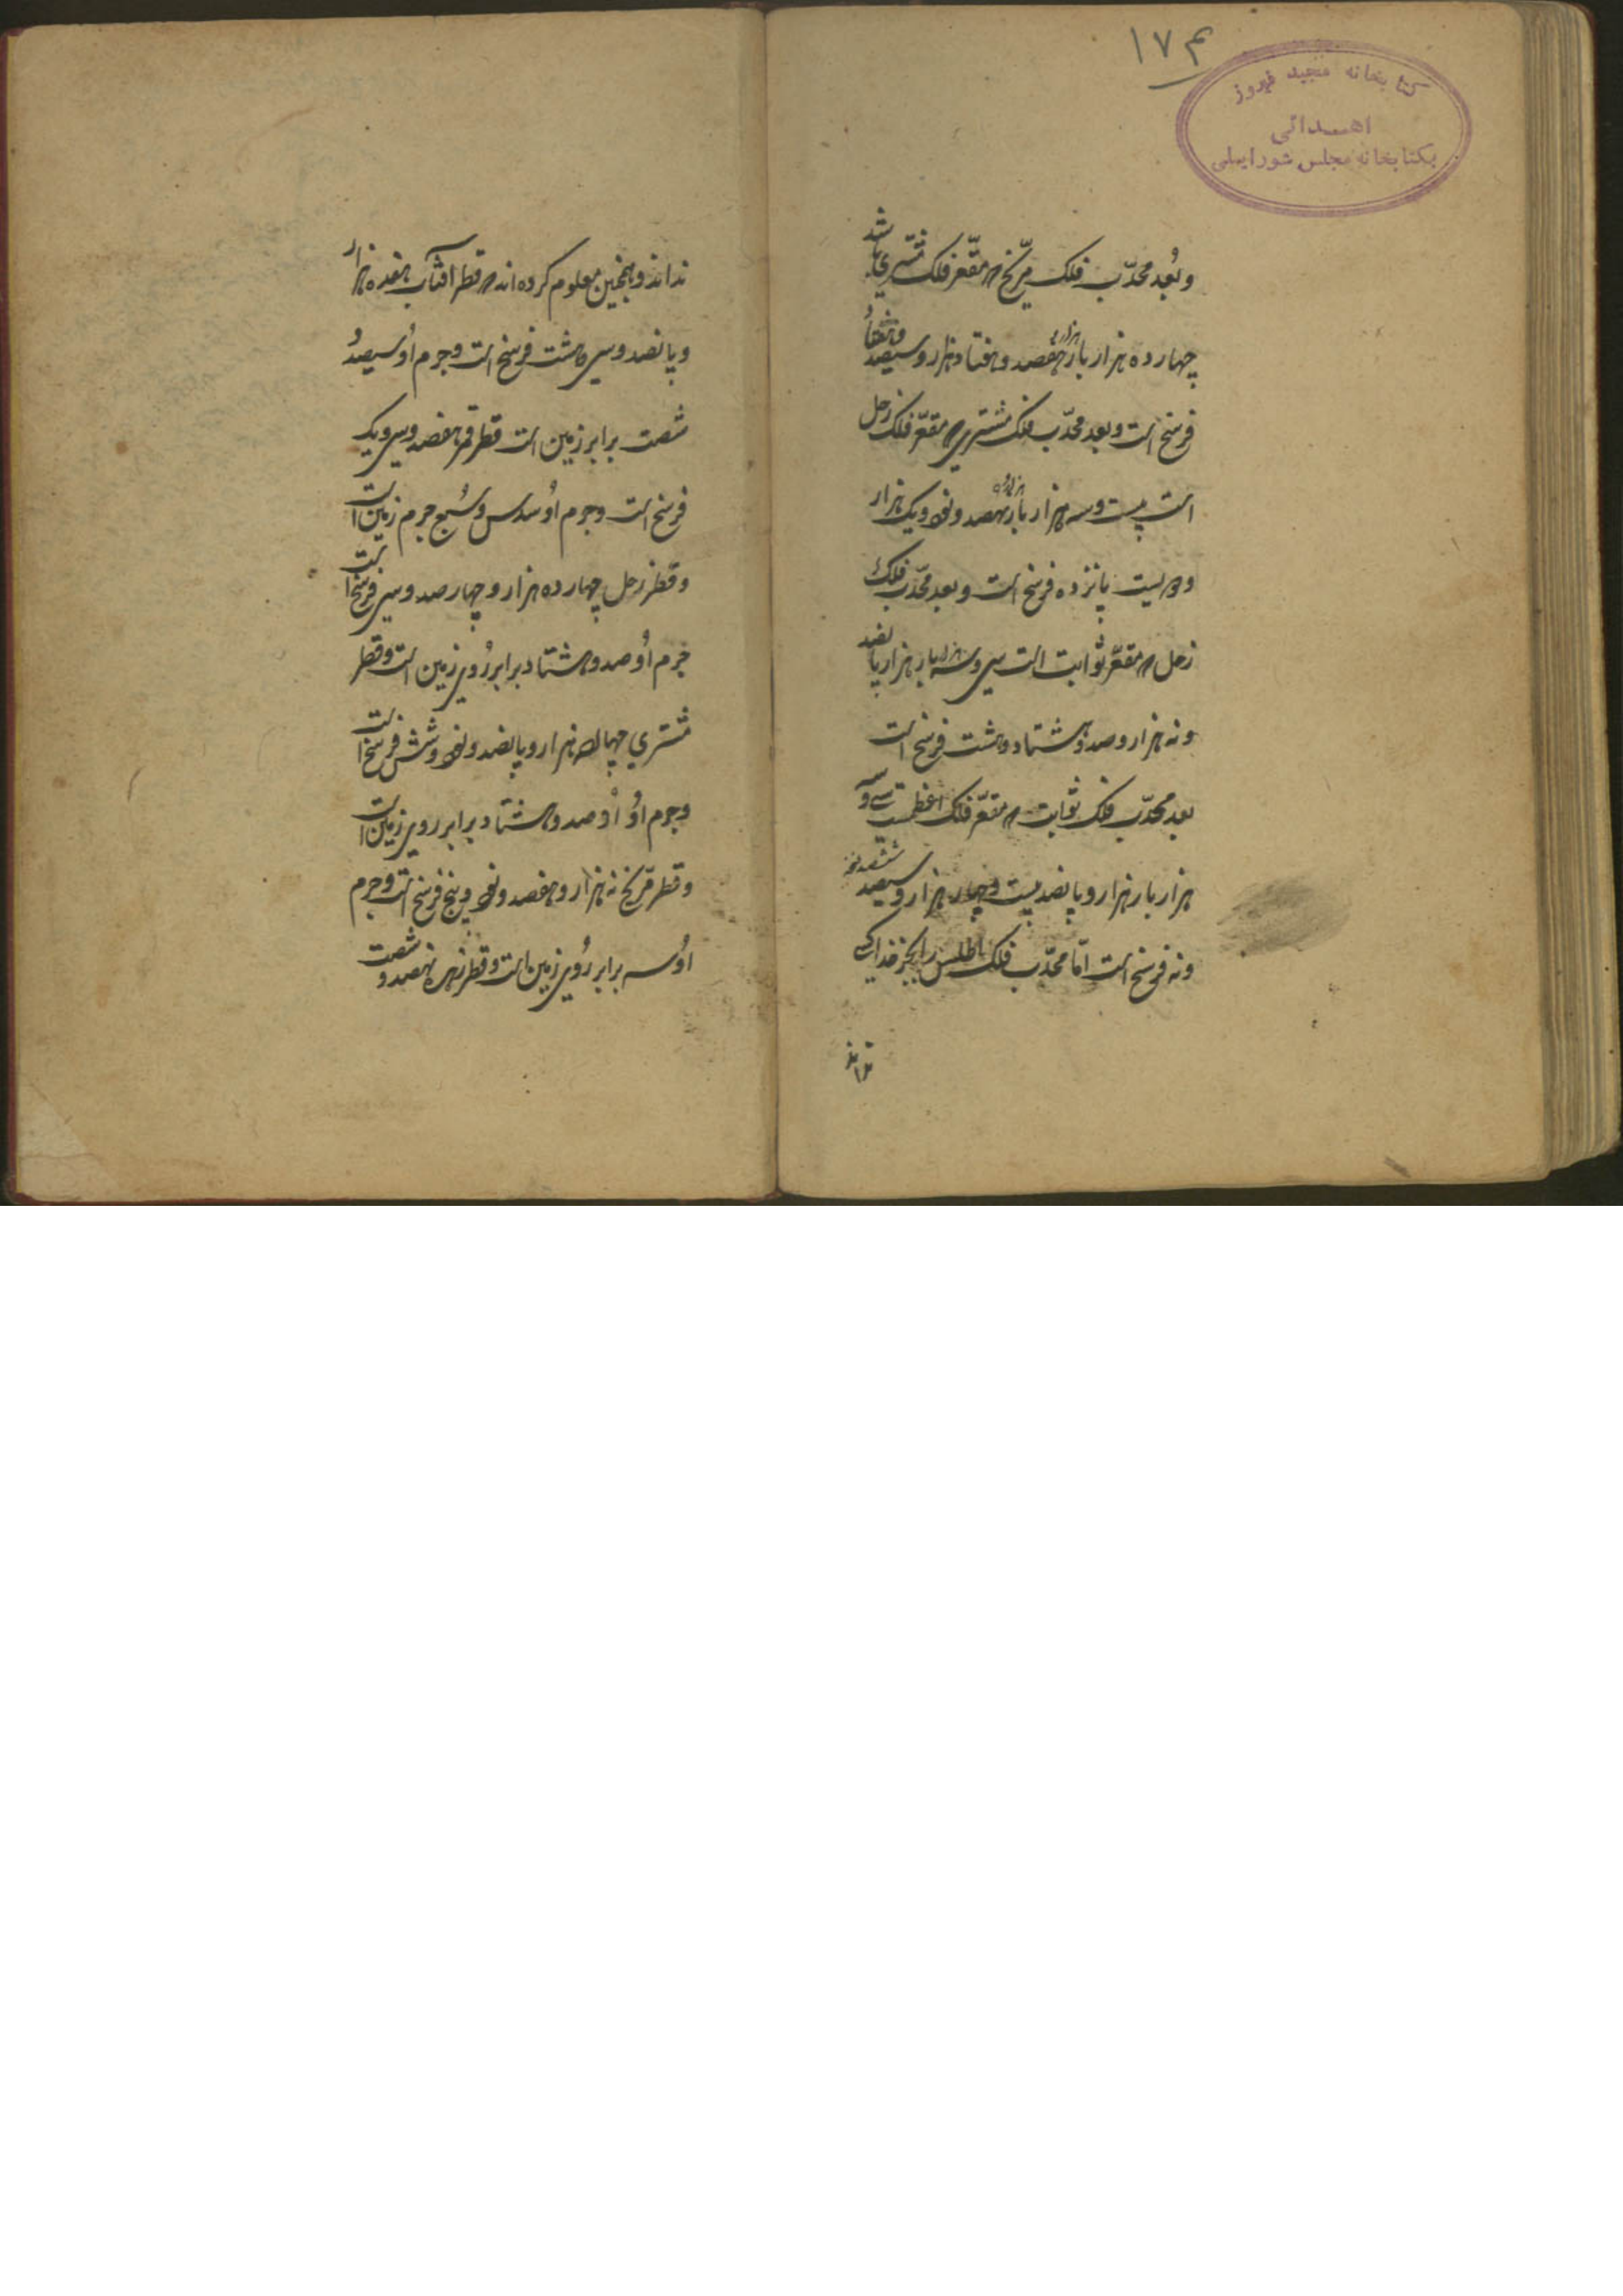 ۱۷۴
کتابخانه مجید فیروز
اهدائی
بکتابخانه مجلس شورایملی
و بُعد محدّب فلک مرّیخ که مقعّر فلک مشتری باشد
چهارده هزار بار هزار و هفصد و هفتاد هزار و سیصد و هفتاد
فرسخ است و بعد محدّب فلک مشتری که مقعّر فلک زحل
است بیست و سه هزار بار هزار و نهصد و نود و یک هزار
و دویست پانزده فرسخ است و بعد محدّب فلک
زحل که مقعّر ثوابت است سی و سه هزار بار هزار پانصد
و نه هزار و صد و هشتاد و هشت فرسخ است
بعد محدّب فلک ثوابت که مقعّر فلک اعظمست سی و سه
هزار بار هزار و پانصد بیست و چهار هزار و سیصد
و نه فرسخ است امّا محدّب فلک اطلس را بجز خدا کسی
نداند
نداند و همچنین معلوم کرده اند که قطر افتاب هفده هزار
و پانصد و سی و هشت فرسخ است و جرم اُو سیصد و
شصت برابر زمین است قطر قمر هفصد و سی و یک
فرسخ است و جرم اُو سدس و سُبع جرم زمین است
و قطر زحل چهارده هزار و چهار صد و سی فرسخ است
جرم اُو صد و هشتاد برابر رُوی زمین است و قطر
مشتری چهارده هزار و پانصد و نود و شش فرسخ است
و جرم اُو اُو صد و هشتاد برابر روی زمین است
و قطر مرّیخ نه هزار و هفصد و نود و پنج فرسخ است و جرم
اُو سه برابر رُوی زمین است و قطر زهره نهصد و شصت